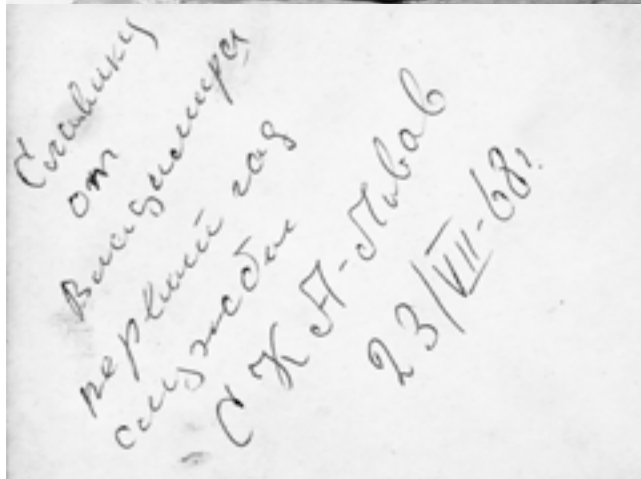 Славику
от
Владимира
первый год
службы
СКА-Львов
23/VII-68г.